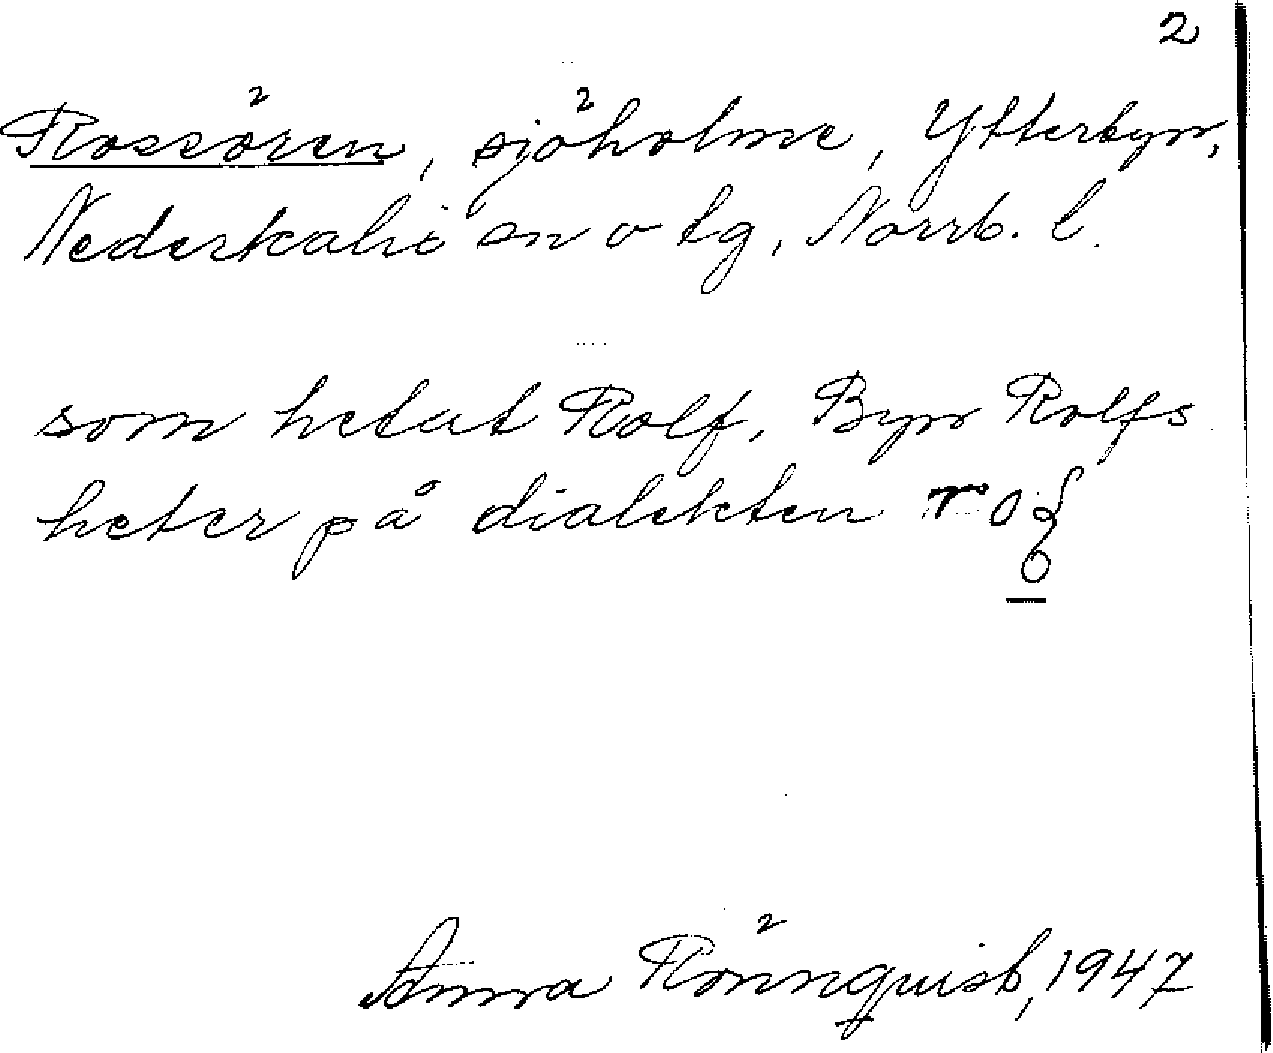 2
Rossören, sjöholme, Ytterbyn,
Nederkalix sn o tg, Norrb. l.
som hetat Rolf. Byn Rolfs
heter på dialekten
Anna Rönnquist, 1947